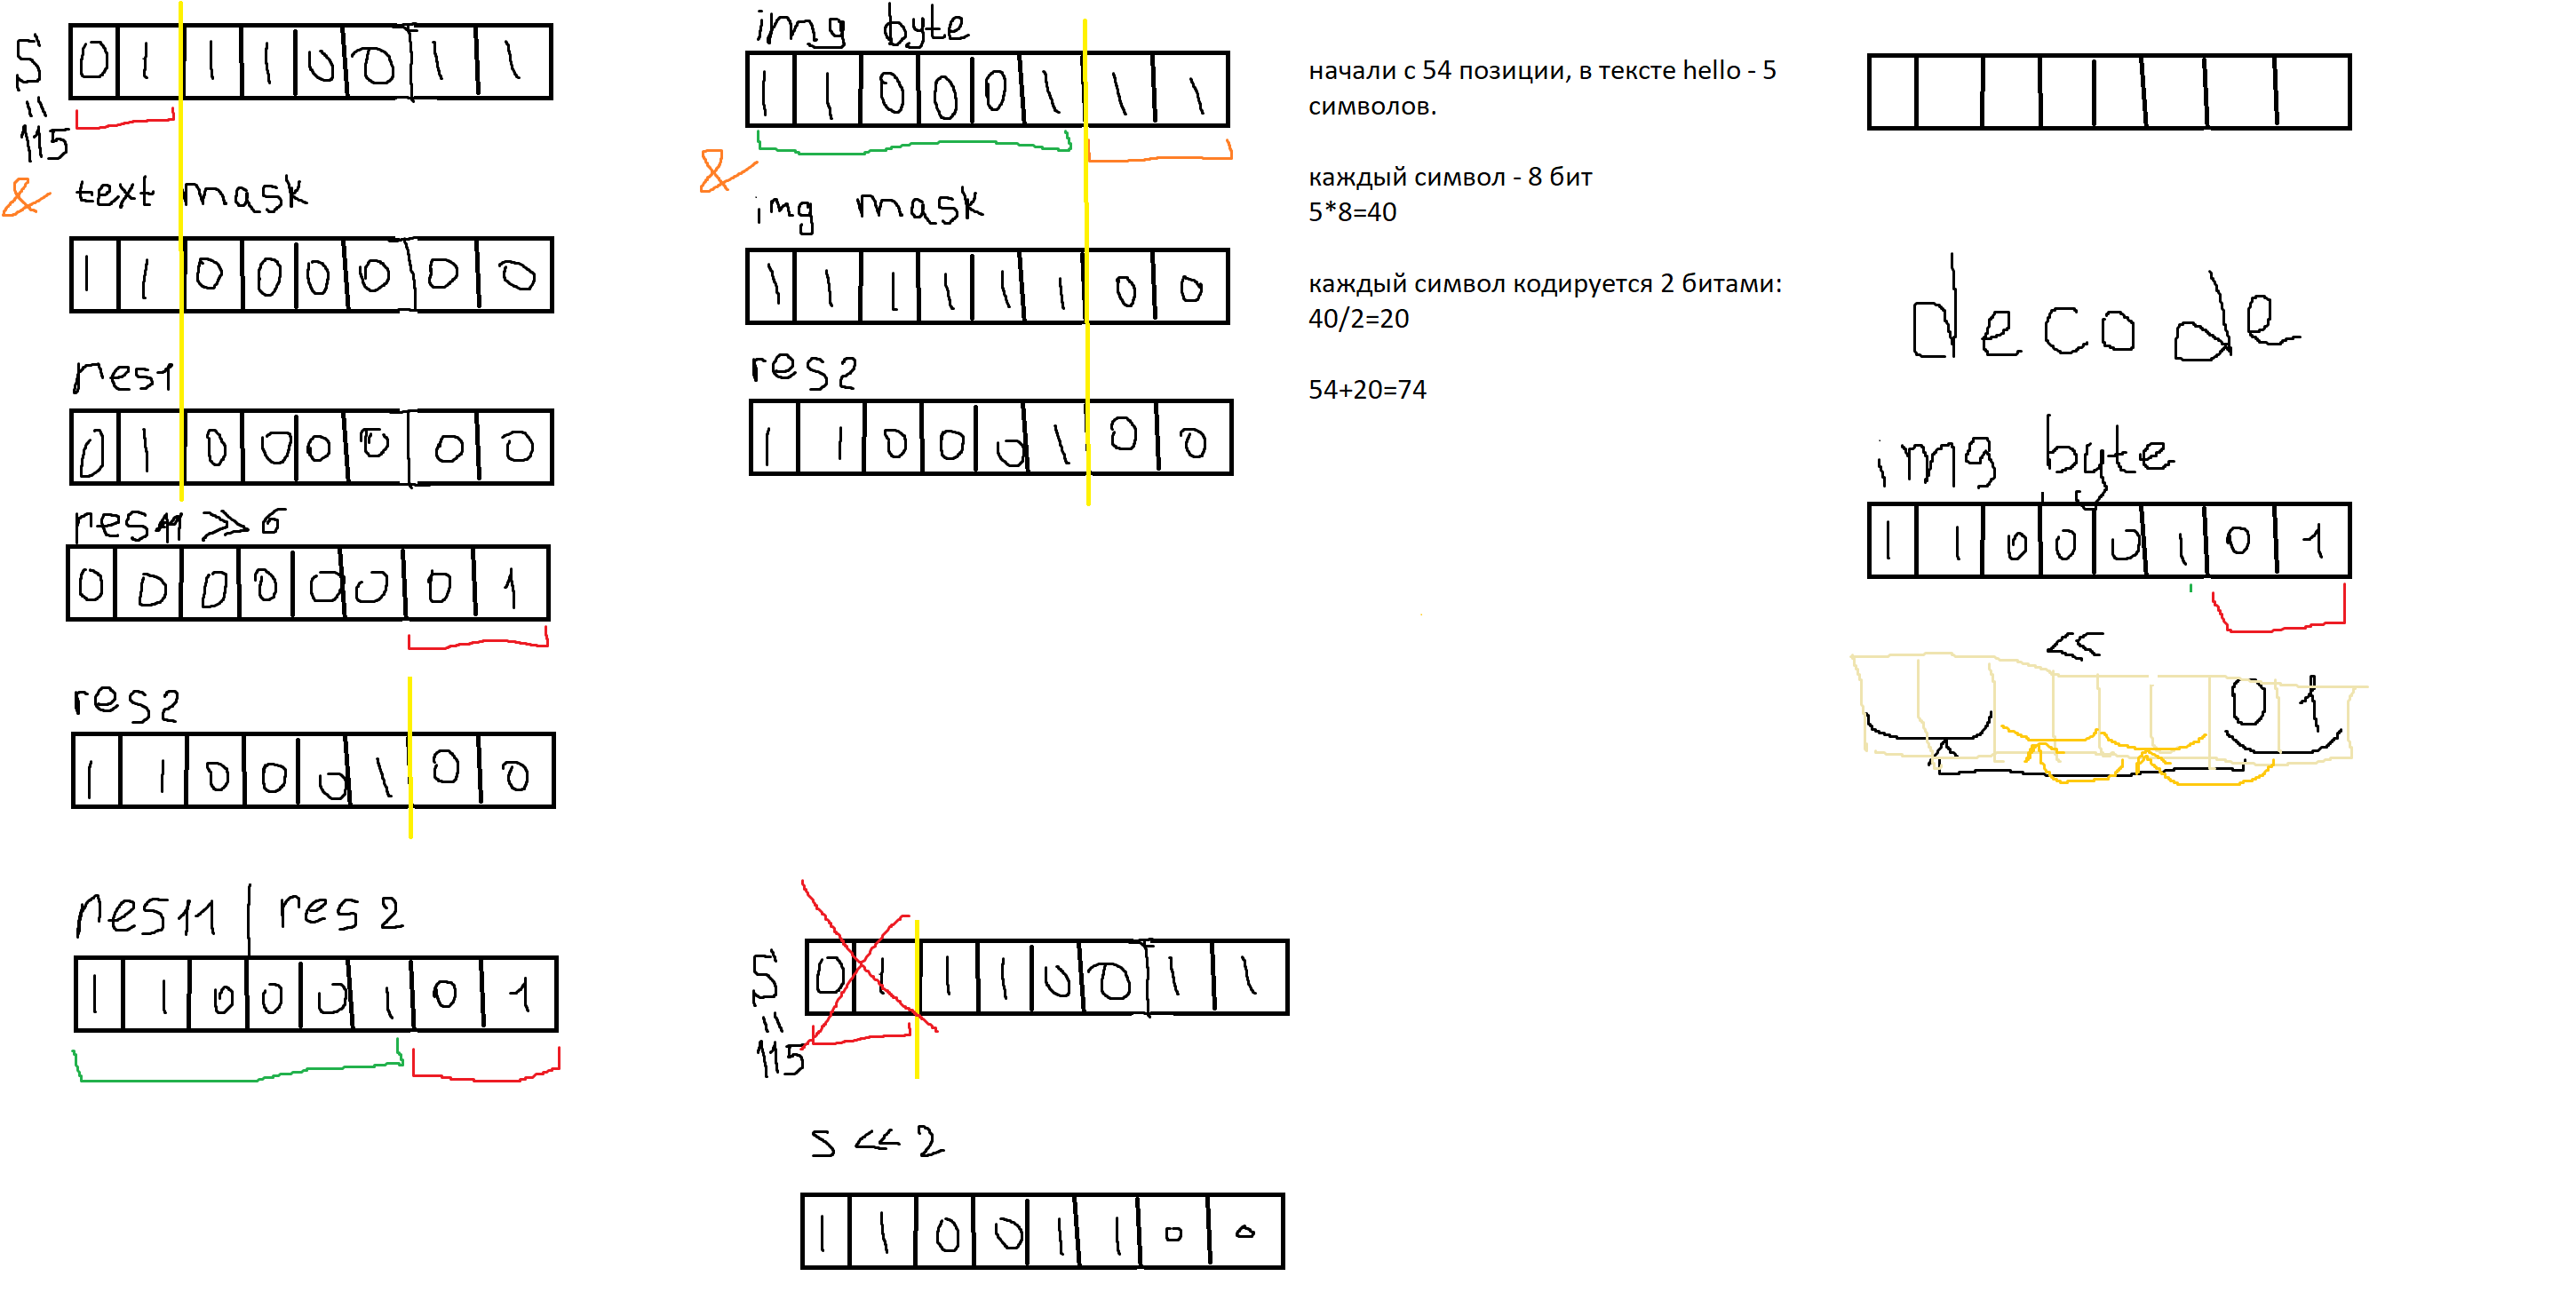 S
0 1 1 1 0 0 1 1
=
115
& text mask
1 1 0 0 0 0 0 0
res1
0 1 0 0 0 0 0 0
res11 >> 6
0 0 0 0 0 0 0 1
res2
1 1 0 0 0 1 0 0
res11 | res2
1 1 0 0 0 1 0 1
img byte
1 1 0 0 0 1 1 1
&
img mask
1 1 1 1 1 1 0 0
res2
1 1 0 0 0 1 0 0
S
0 1 1 1 0 0 1 1
=
115
s << 2
1 1 0 0 1 1 0 0
начали с 54 позиции, в тексте hello - 5
символов.
каждый символ - 8 бит
5*8=40
каждый символ кодируется 2 битами:
40/2=20
54+20=74
decode
img byte
1 1 0 0 0 1 0 1
<<
0 1